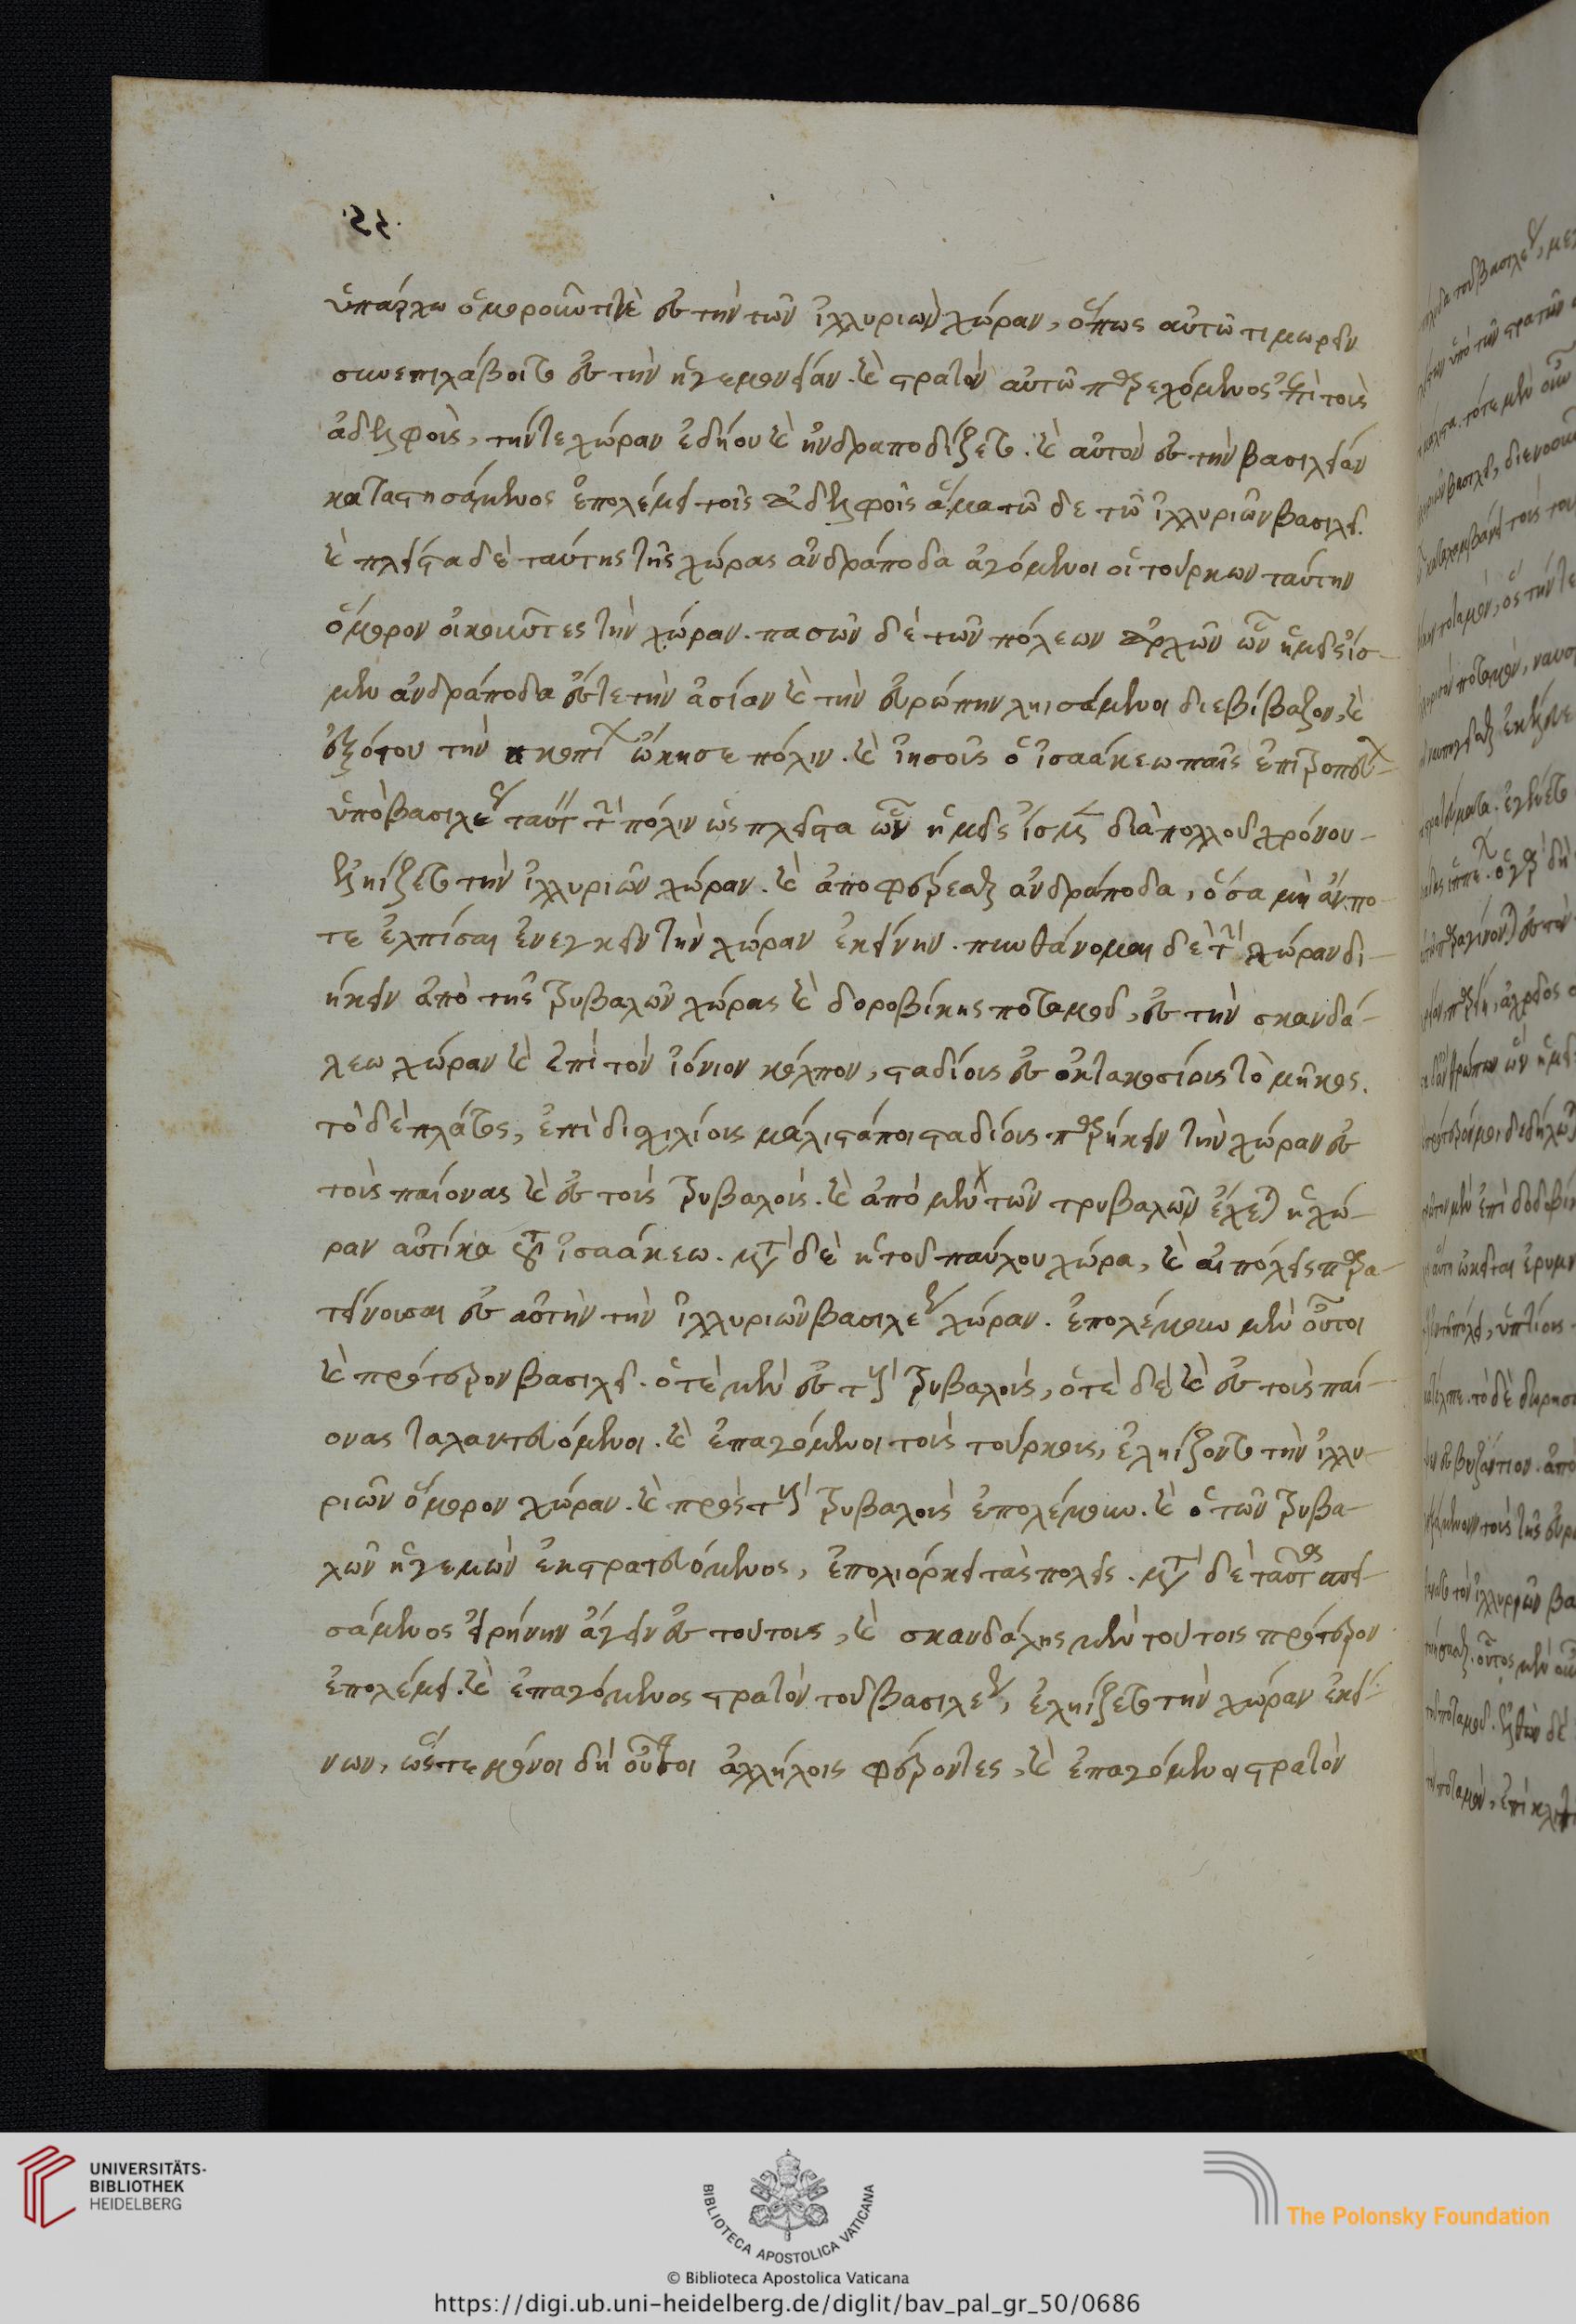 ὑπάρχω ὁμοροῦντι ἐς τὴν τῶν ἰλλυριῶν χώραν, ὅπως αὐτῶ τιμωρεῖν
συνεπιλάβοιτο ἐς τὴν ἡγεμονείαν. καὶ στρατὸν αὐτῶ παρεχόμενος ἐπὶ τοὺς
ἀδελφοὺς, τήν τε χώραν ἐδήου καὶ ἠνδραποδίζετο. καὶ αὐτὸν ἐς τὴν βασιλείαν
καταστησάμενος ἐπολέμει τοῖς ἀδελφοῖς ἅμα τῶ δε τῶ ἰλλυριῶν βασιλεῖ.
καὶ πλεῖστα δὲ ταύτης τῆς χώρας ἀνδράποδα ἀγόμενοι οἱ τούρκων ταύτην
ὅμορον οἰκοῦντες τὴν χώραν. πασῶν δὲ τῶν πόλεων ἀρχῶν ὧν ἡμεῖς ἴσ-
μεν ἀνδράποδα ἔς τε τὴν ἀσίαν καὶ τὴν εὐρώπην ληισάμενοι διεβίβαζον. καὶ
ἐξότου τὴν ὤκησε πόλιν. καὶ ἰησοῦς ὁ ἰσαάκεω παῖς ἐπιτροπεύων
ὑπὸ βασιλέως ταύτην τὴν πόλιν ὡς πλεῖστα ὧν ἡμεῖς ἴσμεν διὰ πολλοῦ χρόνου-
ληίζεται τὴν ἰλλυριῶν χώραν. καὶ ἀποφέρεσθαι ἀνδράποδα, ὅσα μὴ ἄν πο-
τε ἐλπίσαι ἐνεγκεῖν τὴν χώραν ἐκείνην. πυνθάνομαι δὲ τὴν χώραν δι-
ήκειν ἀπὸ τῆς τριβαλῶν χώρας καὶ δοροβίκης ποταμοῦ, ἐς τὴν σκανδά-
λεω χώραν καὶ ἐπὶ τὸν ἰόνιον κόλπον, σταδίους ἐς ὀκτακοσίους τὸ μῆκος.
τὸ δὲ πλάτος, ἐπὶ διχιλίους μάλιστά ποι σταδίους παρήκειν τὴν χώραν ἐς
τοὺς παίονας καὶ ἐς τοὺς τριβαλούς. καὶ ἀπὸ μὲν τῶν τρυβαλῶν ἔχεται ἡ χώ-
ραν αὐτίκα τοῦ ἰσαάκεω. μετὰ δὲ ἡ τοῦ παύλου χώρα, καὶ αἱ πόλεις παρα-
τείνουσαι ἐς αὐτὴν τὴν ἰλλυριῶν βασιλέως χώραν. ἐπολέμουν μὲν οὗτοι
καὶ πρότερον βασιλεῖ. ὁτὲ μὲν ἐς τοὺς τριβαλούς, ὁτὲ δὲ καὶ ἐς τοὺς παί-
ονας ταλαντευόμενοι. καὶ ἐπαγόμενοι τοὺς τούρκους, ἐληίζοντο τὴν ἰλλυ-
ριῶν ὅμορον χώραν. καὶ πρὸς τοὺς τριβαλοὺς ἐπολέμουν. καὶ ὁ τῶν τριβα-
λῶν ἡγεμὼν ἐκστρατευόμενος, ἐπολιόρκει τὰς πολεις. μετὰ δὲ ταῦτα
σάμενος εἰρήνην ἄγειν ἐς τουτους, καὶ σκανδάλης μὲν τούτοις πρότερον
ἐπολέμει. καὶ ἐπαγόμενος στρατὸν τοῦ βασιλέως, ἐληίζετο τὴν χώραν ἐκεί-
νων, ὥστε μόνοι δὴ οὗτοι ἀλλήλοις φέροντες, καὶ ἐπαγόμενοι στρατὸν
UNIVERSITÄTS-
BIBLIOTHEK
HEIDELBERG
BIBLIOTECA APOSTOLICA VATICANA
The Polonsky Foundation
© Biblioteca Apostolica Vaticana
https://digi.ub.uni-heidelberg.de/diglit/bav_pal_gr_50/0686